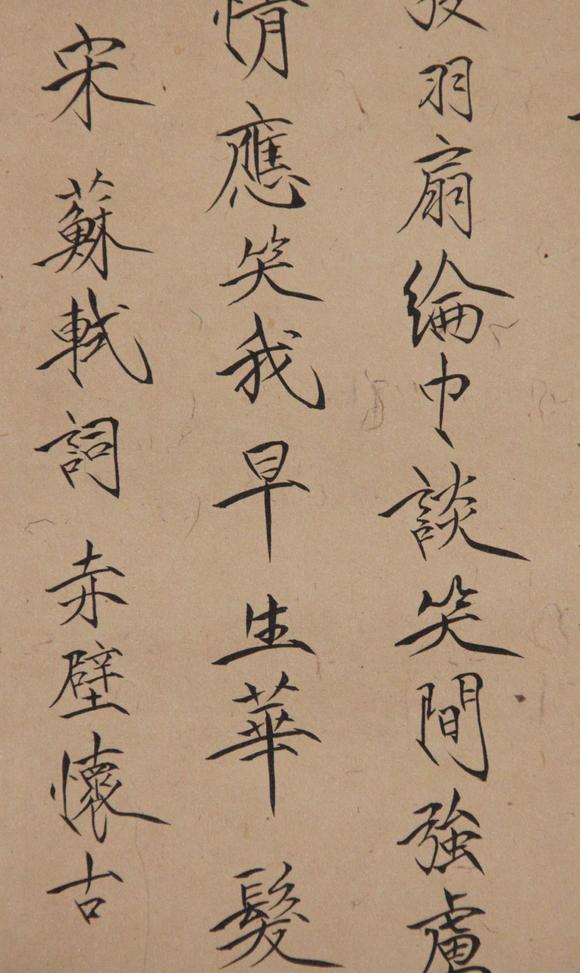 發羽扇綸巾談笑間強虜
情應笑我早生華髮
宋蘇軾詞赤壁懷古